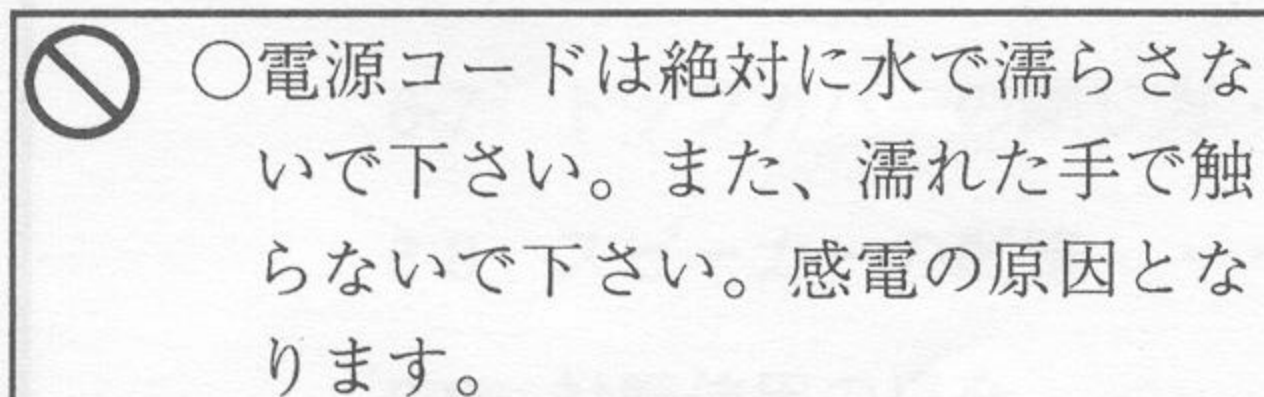 ○電源コードは絶対に水で濡らさな
いで下さい。また、濡れた手で触
らないで下さい。感電の原因とな
ります。